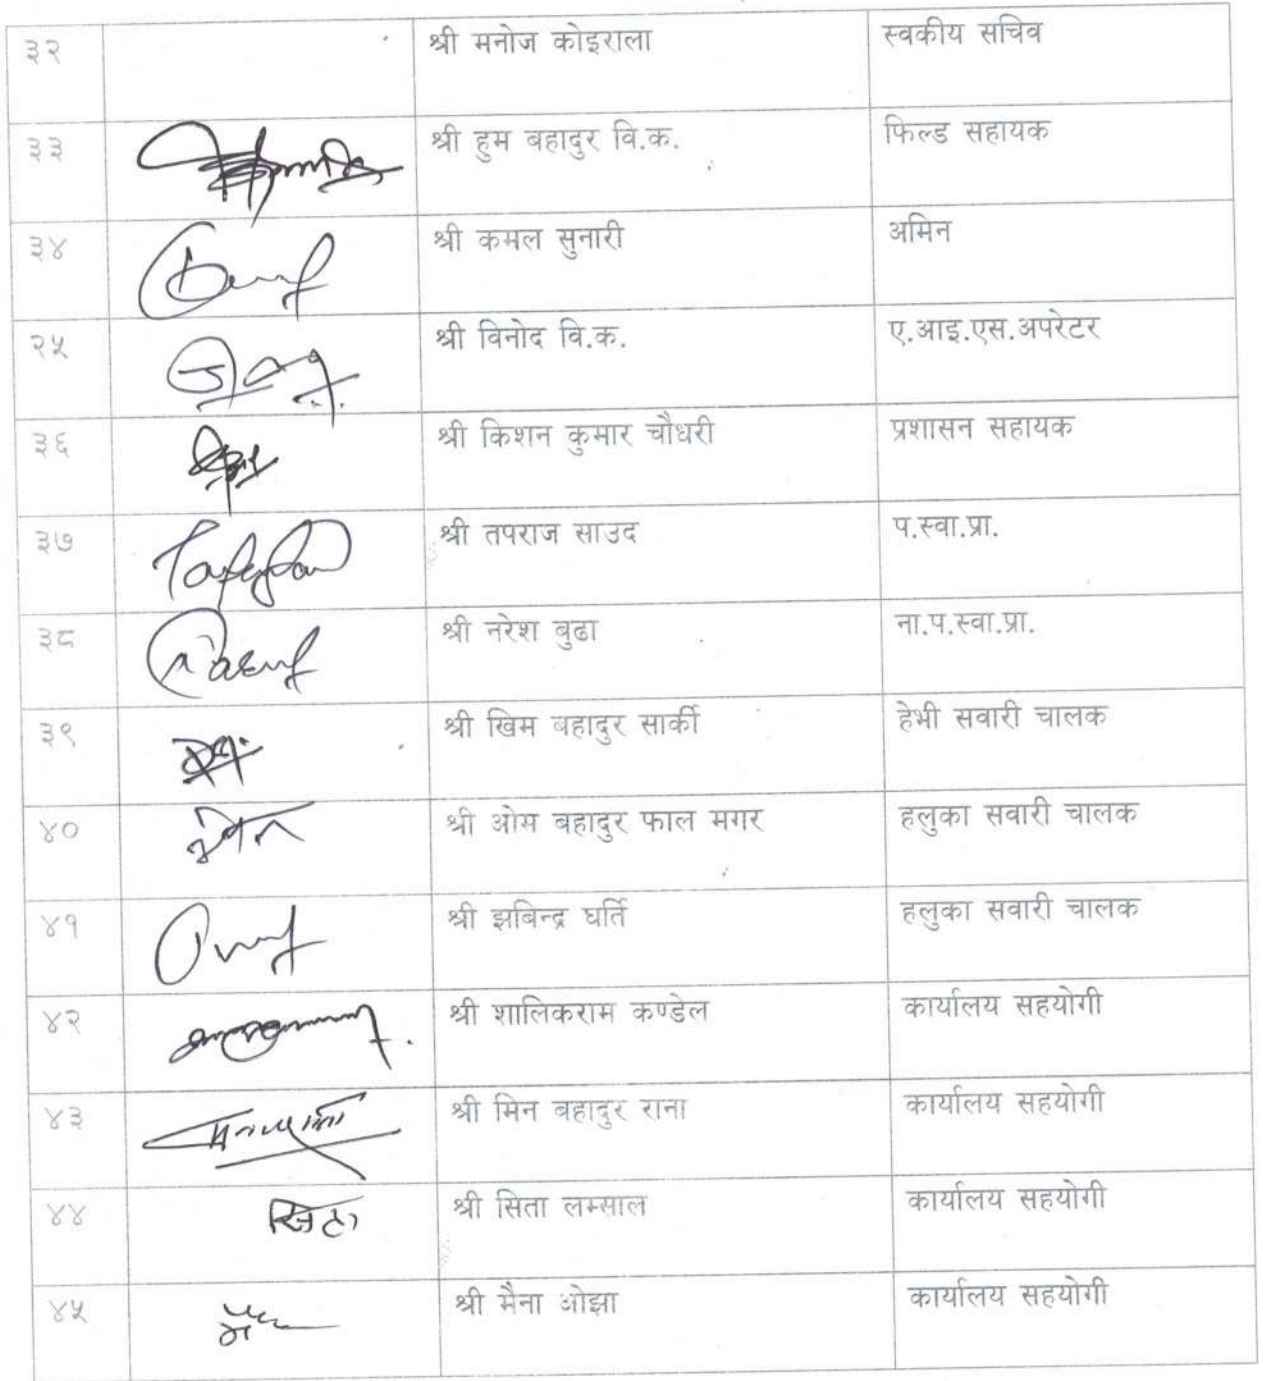 ३२ श्री मनोज कोइराला स्वकीय सचिव
३३ श्री हुम बहादुर वि.क. फिल्ड सहायक
३४ श्री कमल सुनारी अमिन
२५ श्री विनोद वि.क. ए.आइ.एस.अपरेटर
३६ श्री किशन कुमार चौधरी प्रशासन सहायक
३७ श्री तपराज साउद प.स्वा.प्रा.
३८ श्री नरेश बुढा ना.प.स्वा.प्रा.
३९ श्री खिम बहादुर सार्की हेभी सवारी चालक
४० श्री ओम बहादुर फाल मगर हलुका सवारी चालक
४१ श्री झबिन्द्र घर्ति हलुका सवारी चालक
४२ श्री शालिकराम कण्डेल कार्यालय सहयोगी
४३ श्री मिन बहादुर राना कार्यालय सहयोगी
४४ सिता श्री सिता लम्साल कार्यालय सहयोगी
४५ श्री मैना ओझा कार्यालय सहयोगी